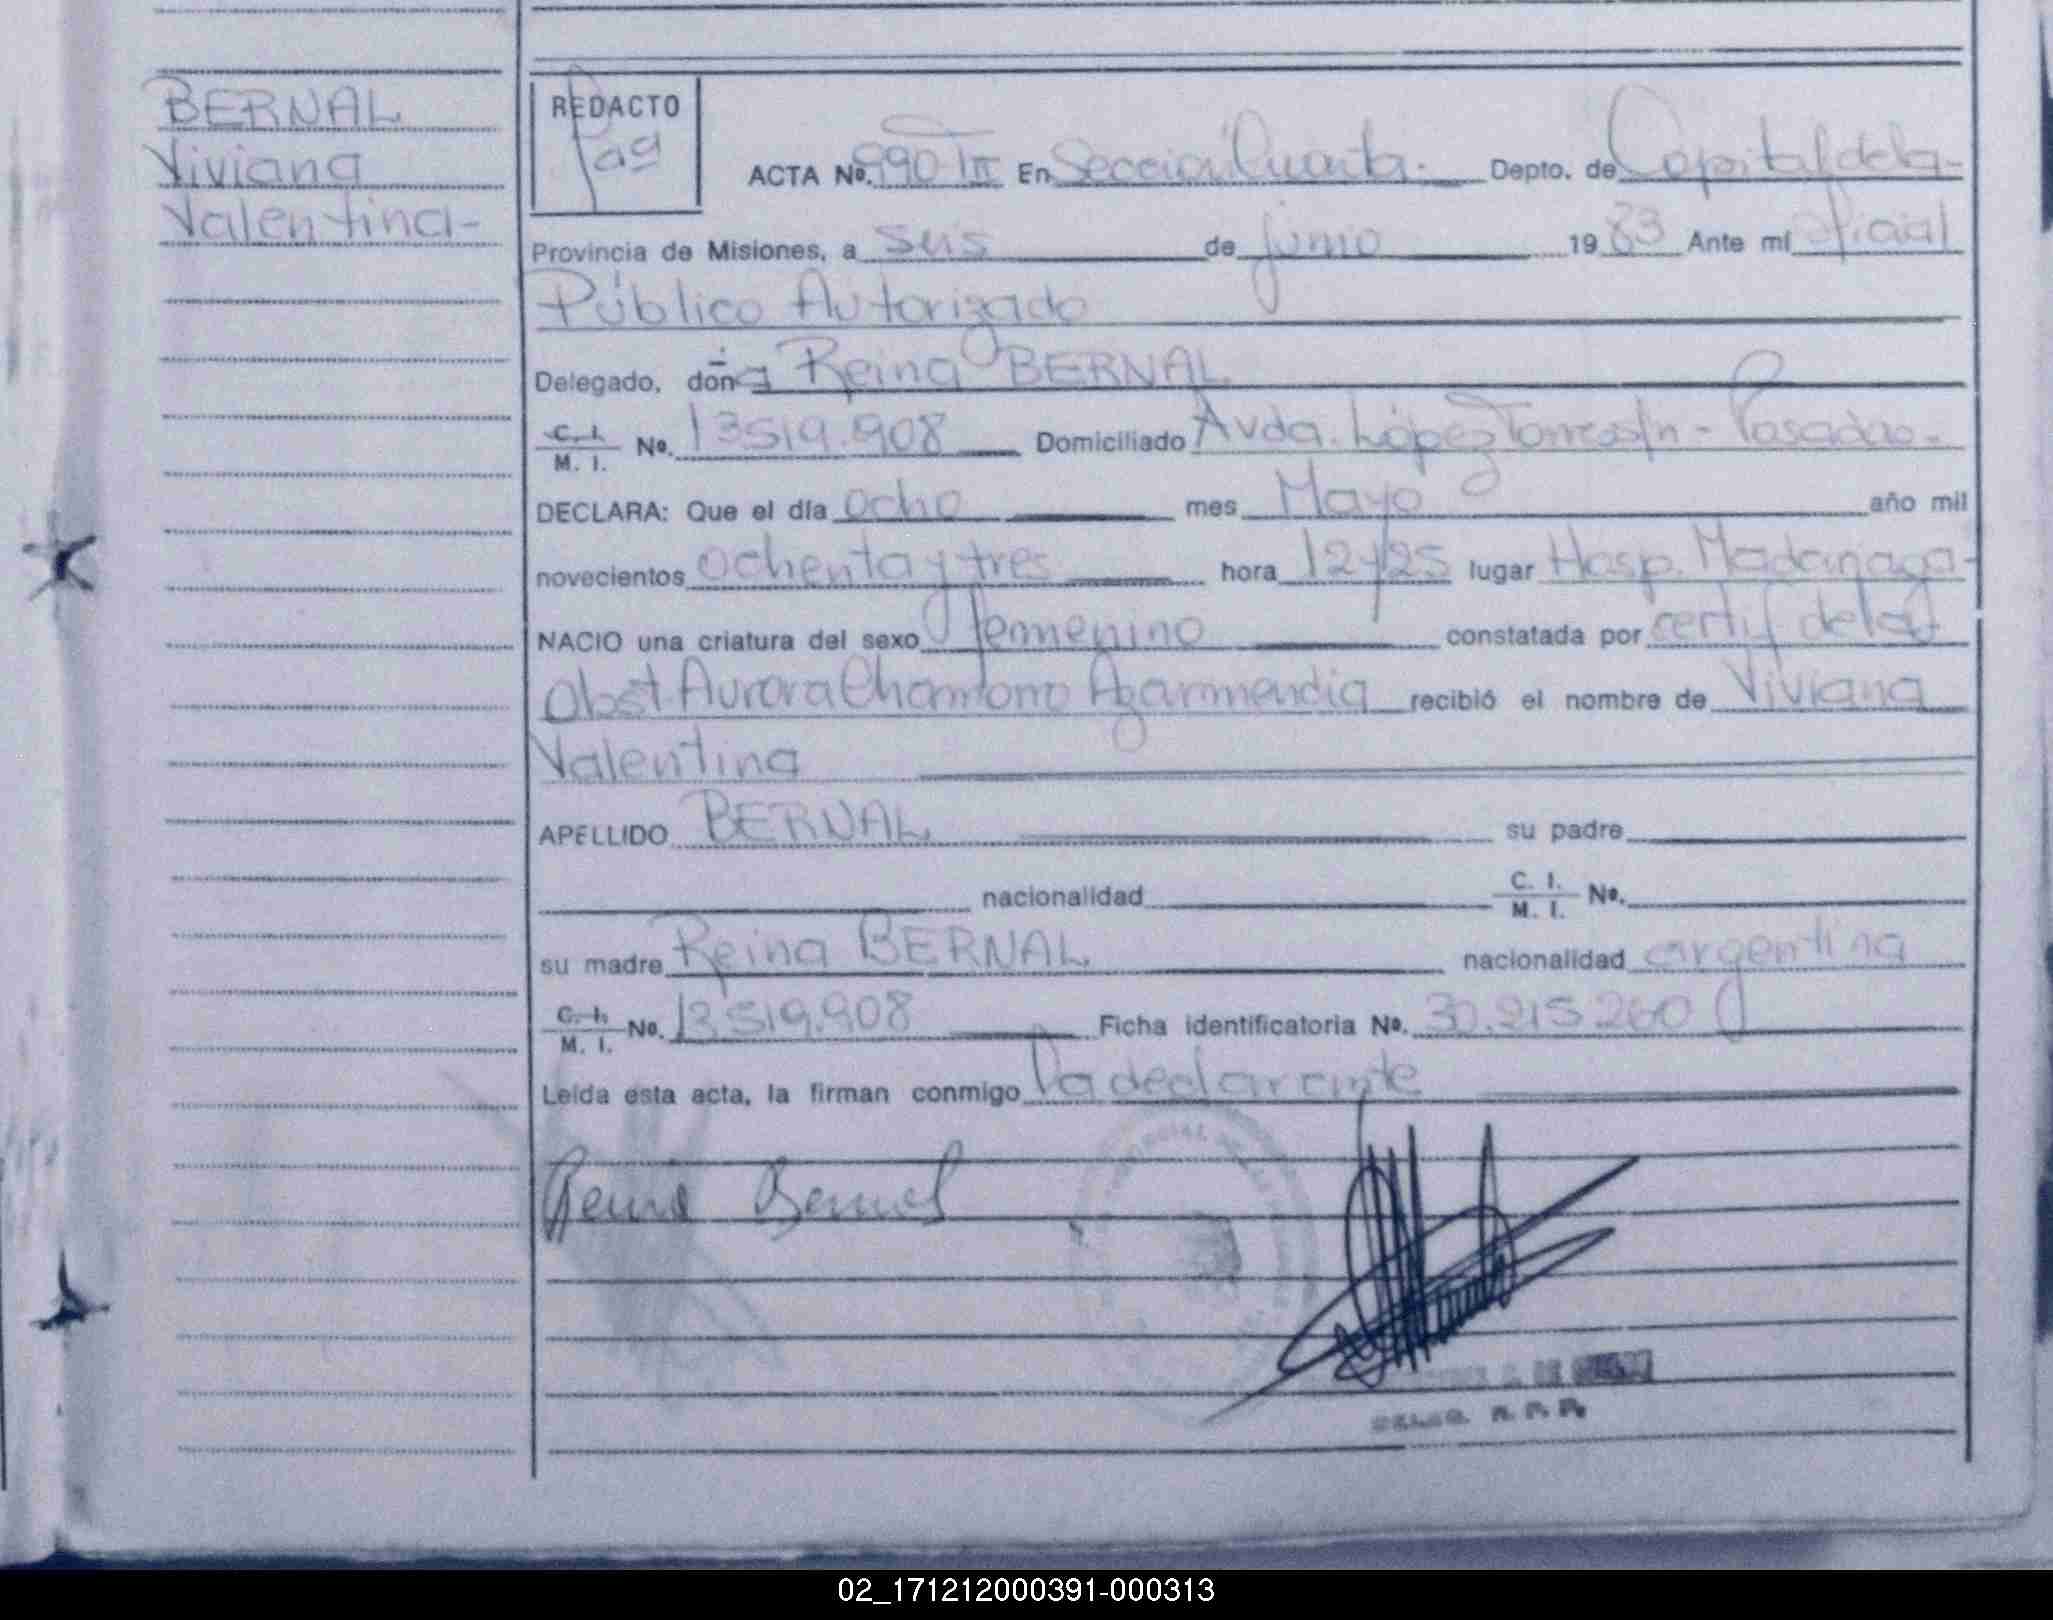 BERNAL
Viviana
Valentina-
REDACTO
Pag
ACTA Nº. 990 TIII En Sección Cuarta. Depto. de Capital de la-
Provincia de Misiones, a seis de junio 1983 Ante mí oficial
Público Autorizado
Delegado, doña Reina BERNAL
C. I.
M. I. Nº. 13519.908 Domiciliado Avda. López Torres s/n - Posadas-
DECLARA: Que el día ocho mes Mayo año mil
novecientos ochenta y tres hora 12y25 lugar Hosp. Madariaga-
NACIO una criatura del sexo femenino constatada por certif de la
Obst Aurora Chamorro Azarmendia recibió el nombre de Viviana
Valentina
APELLIDO BERNAL su padre
nacionalidad C. I.
M. I. Nº.
su madre Reina BERNAL nacionalidad argentina
C. I.
M. I. Nº. 13.519.908 Ficha identificatoria Nº. 30.215260
Leída esta acta, la firman conmigo la declarante
Reina Bernal
02_171212000391-000313